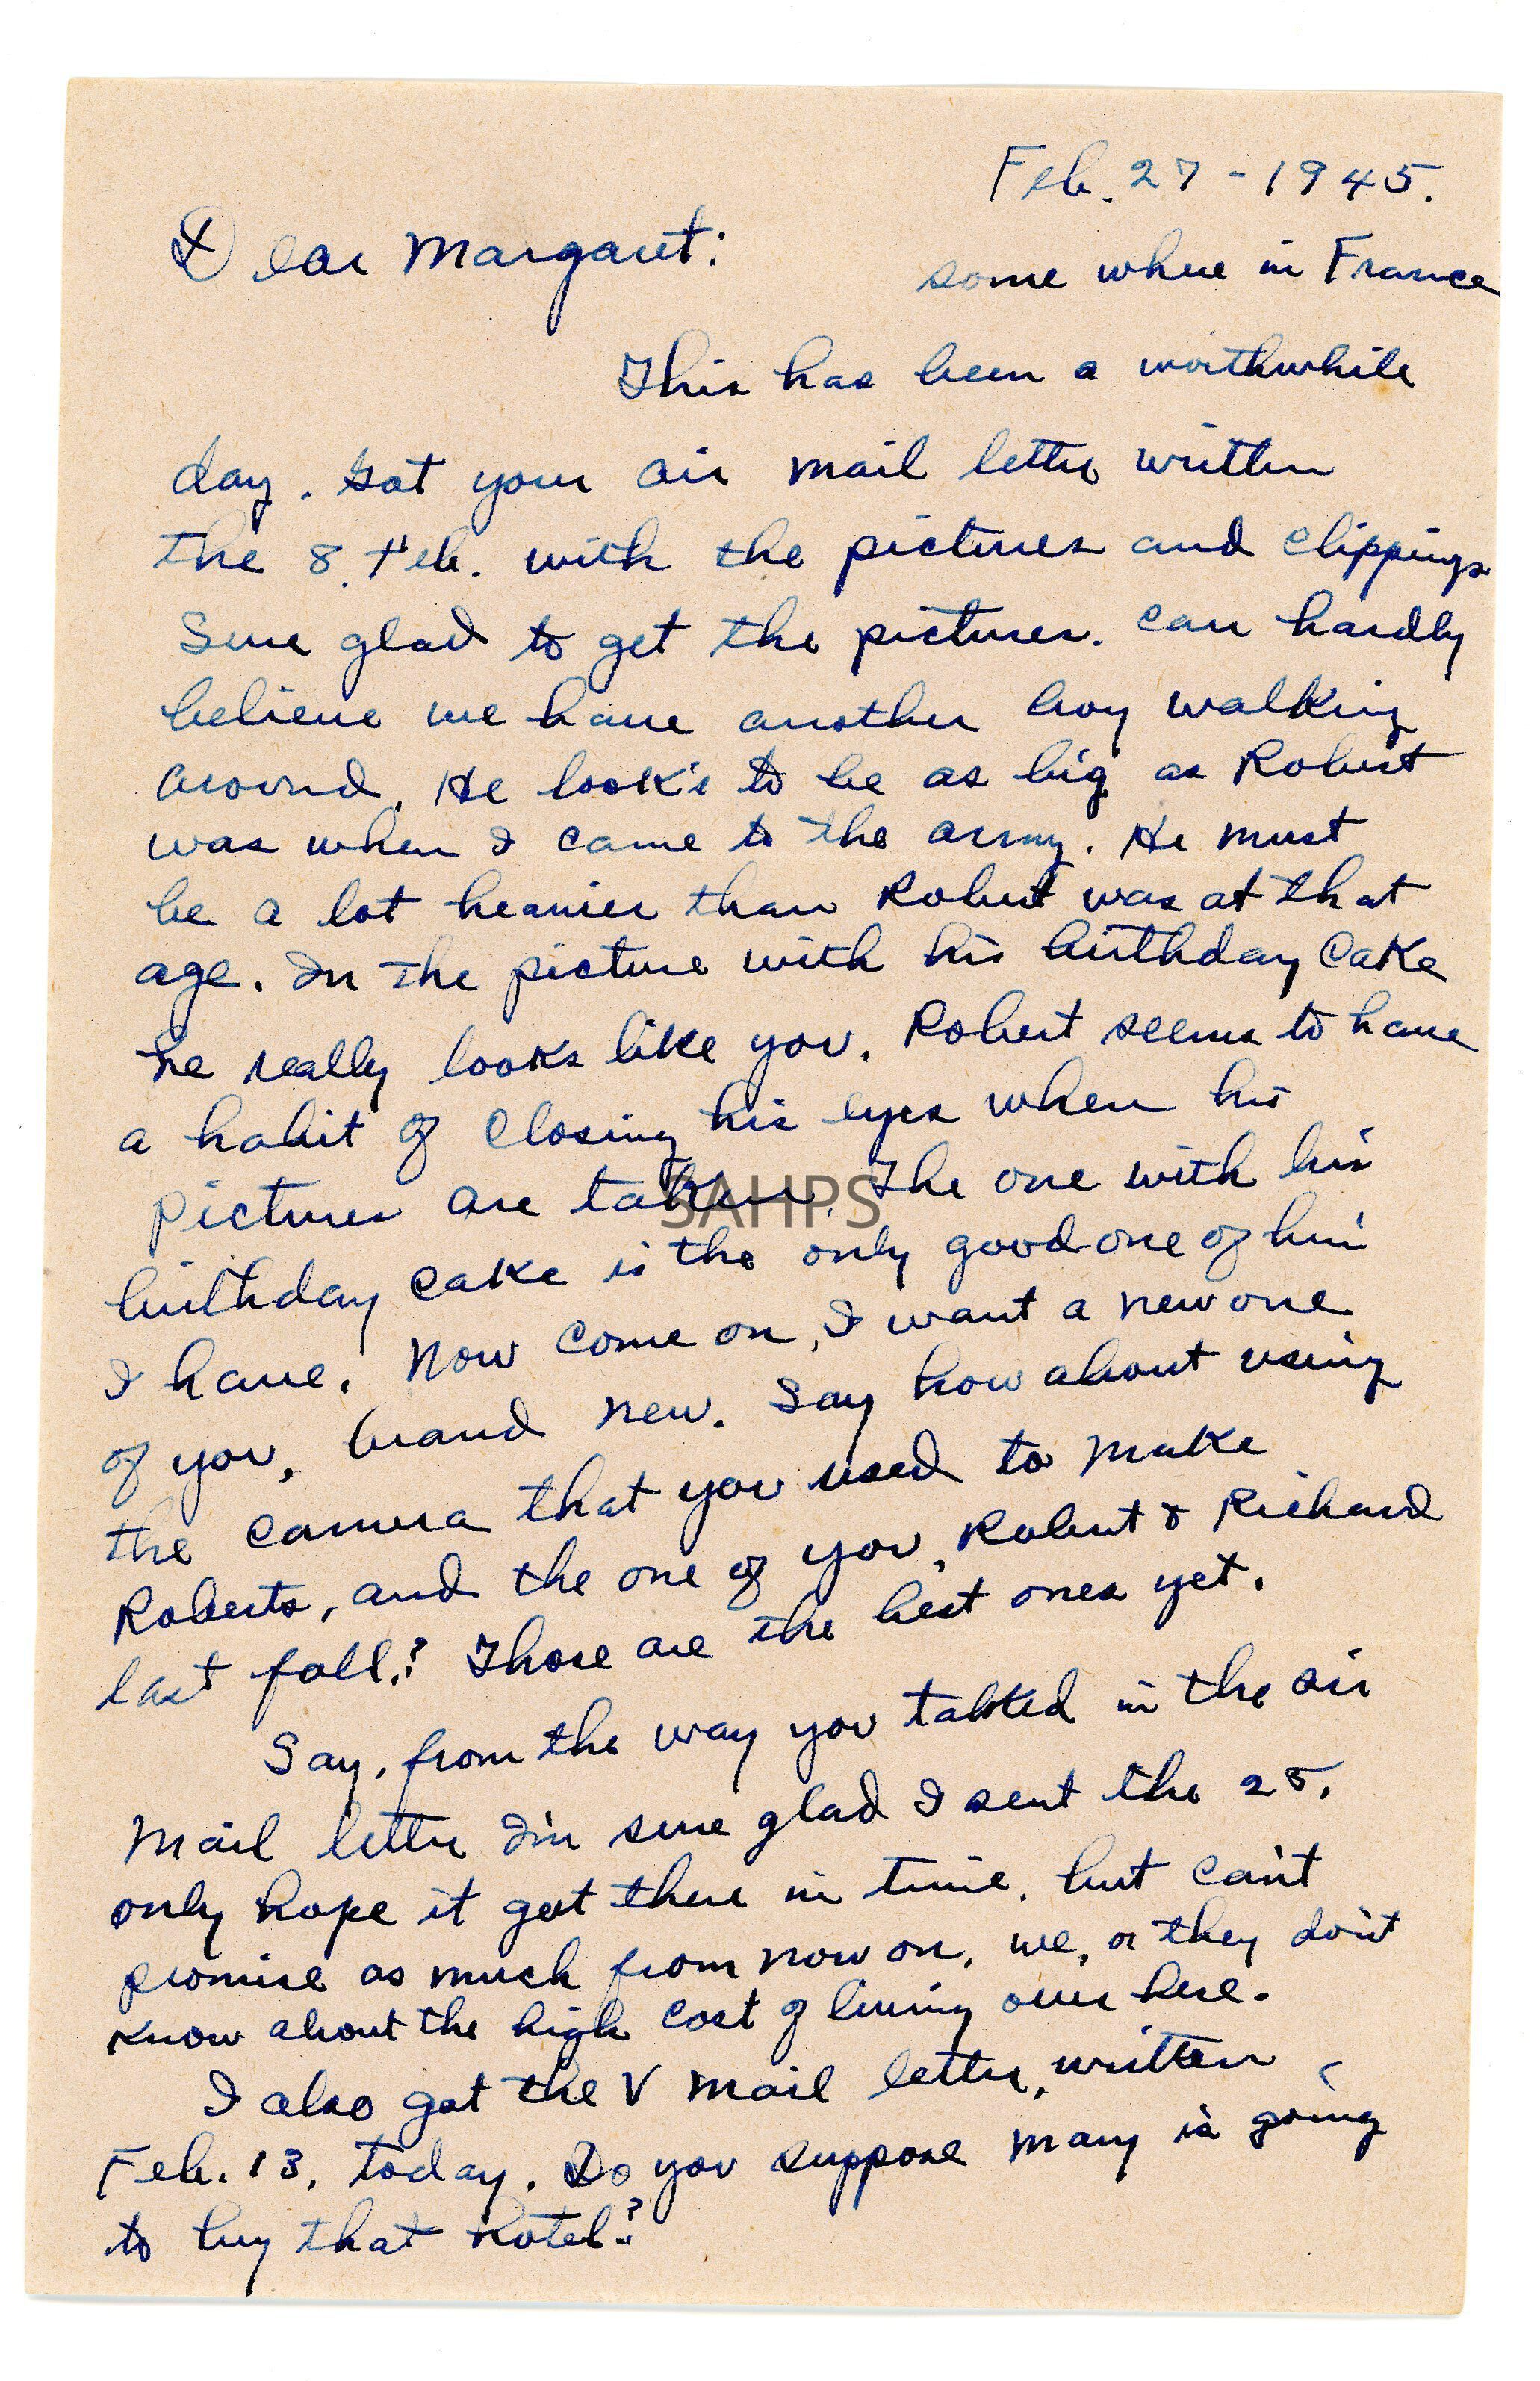 Feb. 27 - 1945.
Dear Margaret:
some where in France
This has been a worthwhile
day. Got your air mail letter written
the 8. Feb. with the pictures and clippings
Sure glad to get the pictures. Can hardly
believe we have another boy walking
around. He look's to be as big as Robert
was when I came to the army. He must
be a lot heavier than Robert was at that
age. In the picture with his birthday cake
he really looks like you. Robert seems to have
a habit of closing his eyes when his
pictures are taken. The one with his
SAHPS
birthday cake is the only good one of him
I have. Now come on, I want a new one
of you, brand new. Say how about using
the camera that you used to make
Roberts, and the one of you, Robert & Richard
last fall? Those are the best ones yet.
Say, from the way you talked in the air
mail letter I'm sure glad I sent the 25.
only hope it got there in time. but can't
promise as much from now on. we, or they don't
know about the high cost of living over here.
I also got the V mail letter, written
Feb. 13, today. Do you suppose Mary is going
to buy that hotel?